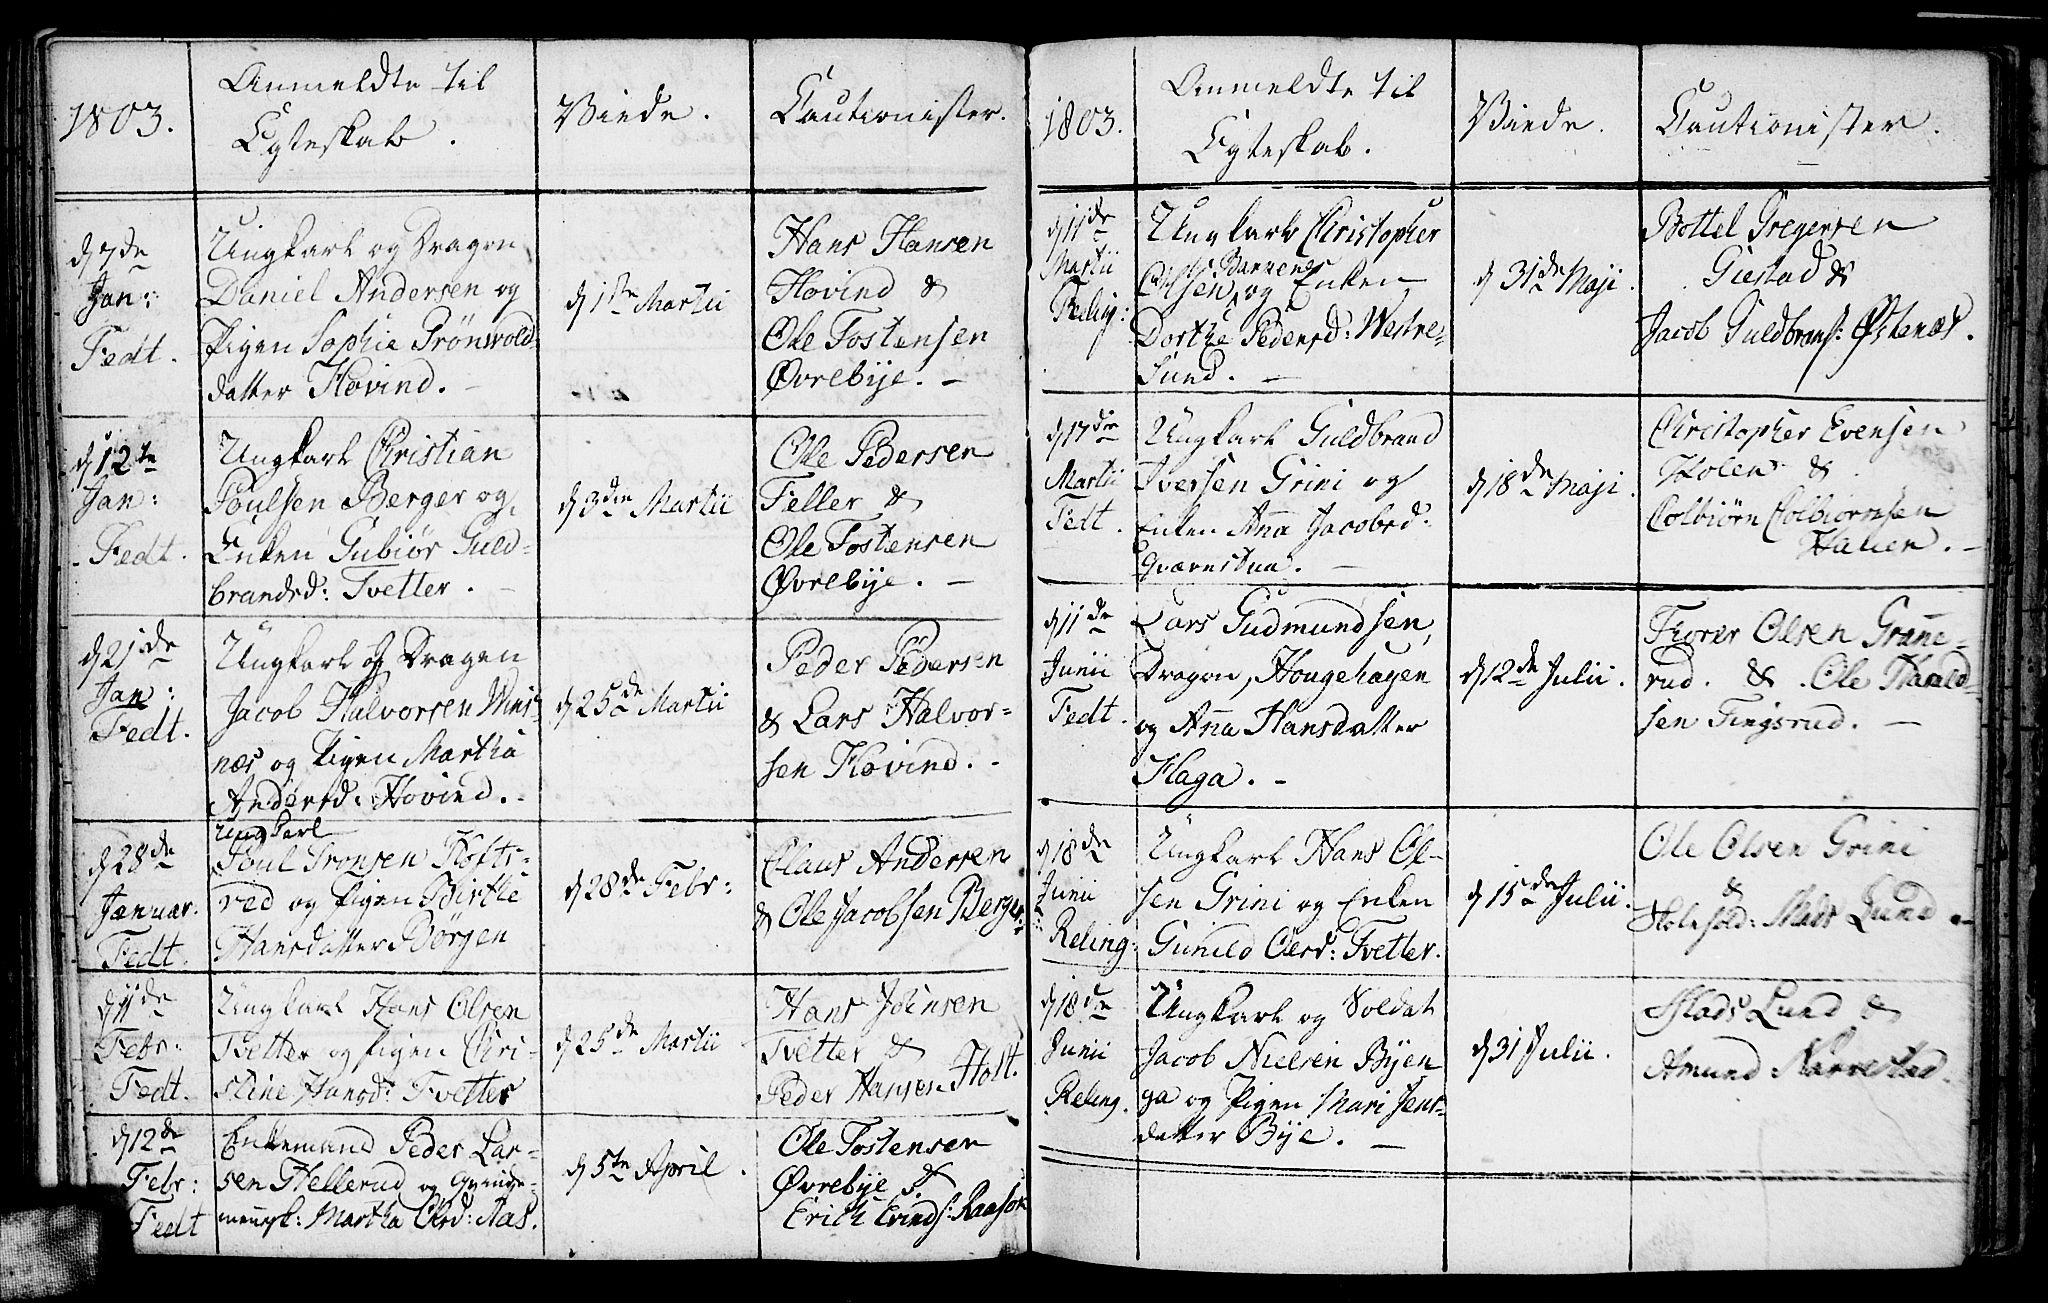 1803.
Anmeldte til
Egteskab.
Viede.
Cautionister.
d 7de
Jan:
Fedt.
Ungkarl og Dragon
Daniel Andersen og
Pigen Sophia Trönsvold-
datter Hovind. -
d 1ste Martii
Hans Hansen
Hovind &
Ole Tostensen
Øvrebye. -
d 12te
Jan:
Fedt.
Ungkarl Christian
Poulsen Berger og
Enken Gubiør Guld-
brandsd: Tvetter. -
d 3die Martii
Ole Pedersen
Feller &
Ole Tostensen
Øvrebye. -
d 21de
Jan:
Fedt.
Ungkarl og Dragon
Jacob Halvorsen Wins-
næs og Pigen Martha
Andersd: Hovind. -
d 25de Martii
Peder Pedersen
& Lars Halvor-
sen Hovind. -
d 28de
Januar.
Fedt.
Ungkarl
Poul Tronsen Kofts-
rød og Pigen Birthe
Hansdatter Børsen
d 28de Febr:
Claus Andersen
& Ole Jacobsen Berger.
d 11de
Febr:
Fedt.
Ungkarl Hans Olsen
Tvetter og Pigen Chri-
stine Hansd: Tvetter
d 25de Martii
Hans Jensen
Tvetter &
Peder Hansen Holt.
d 12de
Febr:
Fedt
Enkemand Peder Lar-
sen Hellerud og Qvinde-
mensk: Martha Olsd: Aas.
d 5te April.
Ole Tostensen
Øvrebye &
Erich Evinds: Raasok
1803.
Anmeldte til
Egteskab.
Viede.
Cautionister.
d 11de
Martii
Reling:
Ungkarl Christopher
Olsen Bannengs og Enken
Dorthe Pedersd: Westre-
Sund. -
d 31de Maji.
Bottel Gregersen
Giestad &
Jacob Guldbrans: Østenæs.
d 17de
Martii
Fedt.
Ungkarl Guldbrand
Iversen Grini og
Enken Anna Jacobsd:
Qvernstua. -
d 18de Maji.
Christopher Evensen
Holen &
Colbiörn Colbiörnsen
Hauer. -
d 11de
Junii
Fedt.
Lars Gudmundsen,
Dragon, Hougehagen
og Anna Hansdatter
Haga. -
d 12de Julii.
Thorer Olsen Granne-
rud. & Ole Harald-
sen Tingsrud. -
d 18de
Junii
Reling.
Ungkarl Hans Ol-
sen Grini og Enken
Gunild Olsd: Tvetter.
d 15de Julii.
Ole Olsen Grini
&
Mads Lund
d 18de
Junii
Reling.
Ungkarl og Soldat
Jacob Nielsen Byen-
ga og Pigen Mari Jens-
datter Bye. -
d 31 Julii.
Mads Lund &
Amund Narrestad.